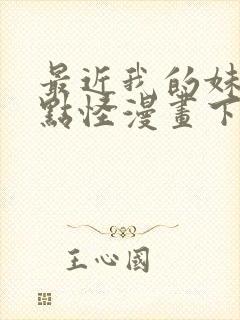 最近我的妹
點怪漫畫下
王心國